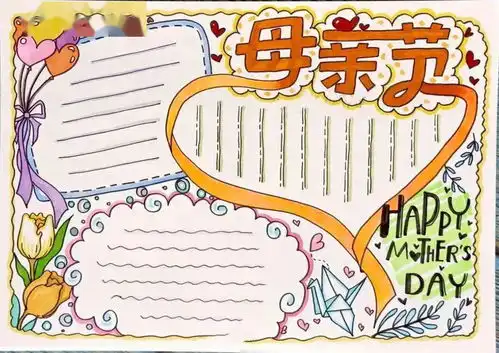 母亲节
HAPPY
MOTHER'S
DAY